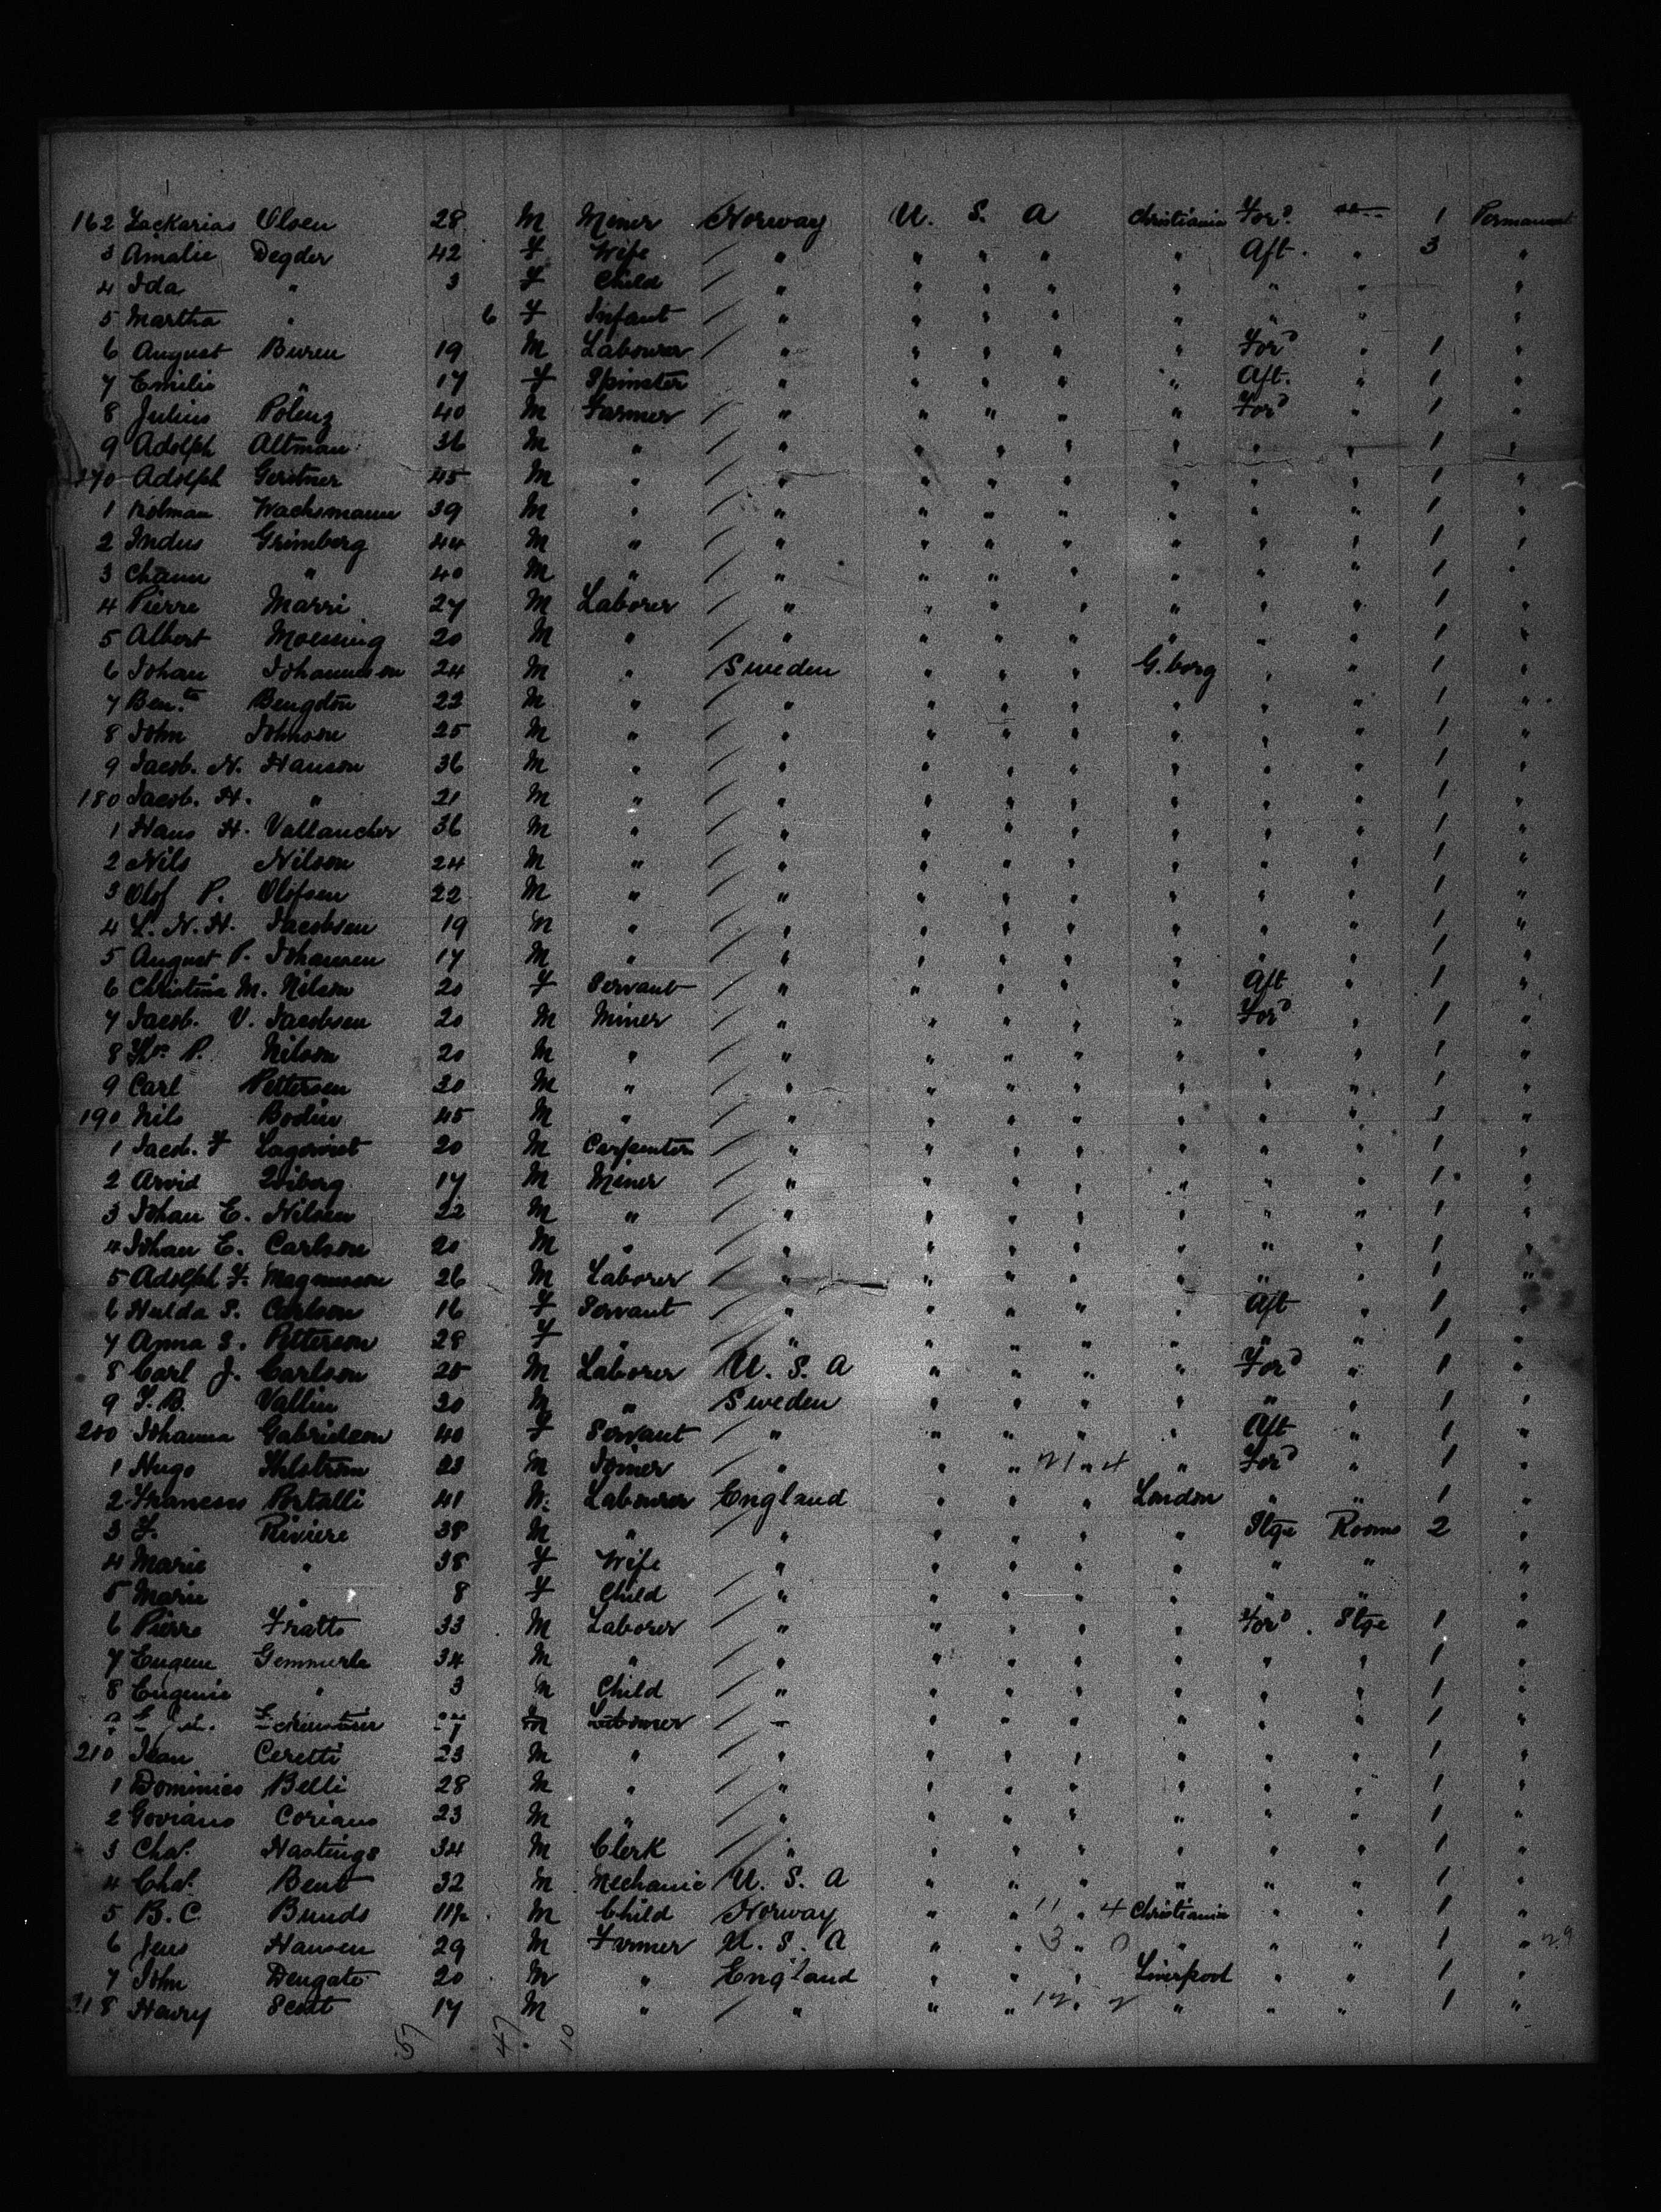 162 Zackarias Olsen 28 M Miner Norway U. S. A Christiania For'd 1 Permanent
3 Amalie Degder 42 F Wife " " " " " Aft. " 3 "
4 Ida " 3 F Child " " " " " " " "
5 Martha " 6 F Infant " " " " " " " "
6 August Buren 19 M Labourer " " " " " For'd " 1 "
7 Emilie " 17 F Spinster " " " " " Aft. " 1 "
8 Julius Polenz 40 M Farmer " " " " " For'd " 1 "
9 Adolph Altman 36 M " " " " " " " " 1 "
170 Adolph Geritner 45 M " " " " " " " " 1 "
1 Kolman Wachsmann 39 M " " " " " " " " 1 "
2 Indus Grimberg 44 M " " " " " " " " 1 "
3 Chaim " 40 M " " " " " " " " 1 "
4 Pierre Marri 27 M Laborer " " " " " " " 1 "
5 Albert Moening 20 M " " " " " " " " 1 "
6 Johan Johannson 24 M " Sweden " " " G.borg " " 1 "
7 Ben.tn Bengdton 22 M " " " " " " " " 1 "
8 John Johnson 25 M " " " " " " " " 1 "
9 Jacob. N. Hanson 36 M " " " " " " " " 1 "
180 Jacob. H. " 21 M " " " " " " " " 1 "
1 Hans H. Vallancher 36 M " " " " " " " " 1 "
2 Nils Nilson 24 M " " " " " " " " 1 "
3 Olof P. Olofsen 22 M " " " " " " " " 1 "
4 L. N. H. Jacobsen 19 M " " " " " " " " 1 "
5 August P. Johansen 17 M " " " " " " " " 1 "
6 Christina M. Nilson 20 F Servant " " " " " Aft " 1 "
7 Jacob. V. Jacobsen 20 M Miner " " " " " For'd " 1 "
8 P. Nilson 20 M " " " " " " " " 1 "
9 Carl Pettersen 20 M " " " " " " " " 1 "
190 Nils Bodin 45 M " " " " " " " " 1 "
1 Jacob. F Lagqvist 20 M Carpenter " " " " " " " 1 "
2 Arvid Wiberg 17 M Miner " " " " " " " 1 "
3 Johan E. Nilsen 22 M " " " " " " " " 1 "
4 Johan E. Carlson 20 M " " " " " " " " 1 "
5 Adolph F. Magnusson 26 M Laborer " " " " " " " 1 "
6 Hulda S. Carlson 16 F Servant " " " " " Aft " 1 "
7 Anna S. Petterson 28 F " " " " " " " " 1 "
8 Carl J. Carlson 25 M Laborer U. S. A " " " " For'd " 1 "
9 J. B. Vallin 30 M " Sweden " " " " " " 1 "
200 Johanna Gabrielson 40 F Servant " " " " " Aft " 1 "
1 Hugo Ahlstrom 23 M Joiner " " " 21 " 4 " For'd " 1 "
2 Francois Portalli 41 M. Labourer England " " " London " " 1 "
3 F. Riviere 38 M " " " " " " Stge Rooms 2 "
4 Marie " 38 F Wife " " " " " " " "
5 Marie " 8 F Child " " " " " " " "
6 Pierre Fratto 33 M Laborer " " " " " For'd Stge 1 "
7 Eugene Gemmerle 34 M " " " " " " " " 1 "
8 Eugenie " 3 M Child " " " " " " " 1 "
M Labourer " " " " " " 1 "
210 Jean Ceretti 23 M " " " " " " " " 1 "
1 Dominico Belli 28 M " " " " " " " " 1 "
2 Goviano Coriano 23 M " " " " " " " " 1 "
3 Chas. Hastings 34 M Clerk " " " " " " " 1 "
4 Chas. Bent 32 M Mechanic U. S. A " " " " " " 1 "
5 B. C. Bunds 11½ M Child Norway " " 11 " 4 Christiania " " 1 "
6 Jens Hansen 29 M Farmer U. S. A " " 3 " 0 " " " 1 " 29
7 John Dengate 20 M " England " " " Liverpool " " 1 "
218 Harry Scott 17 M " " " " 12 " 2 " " " 1 "
57 47 10